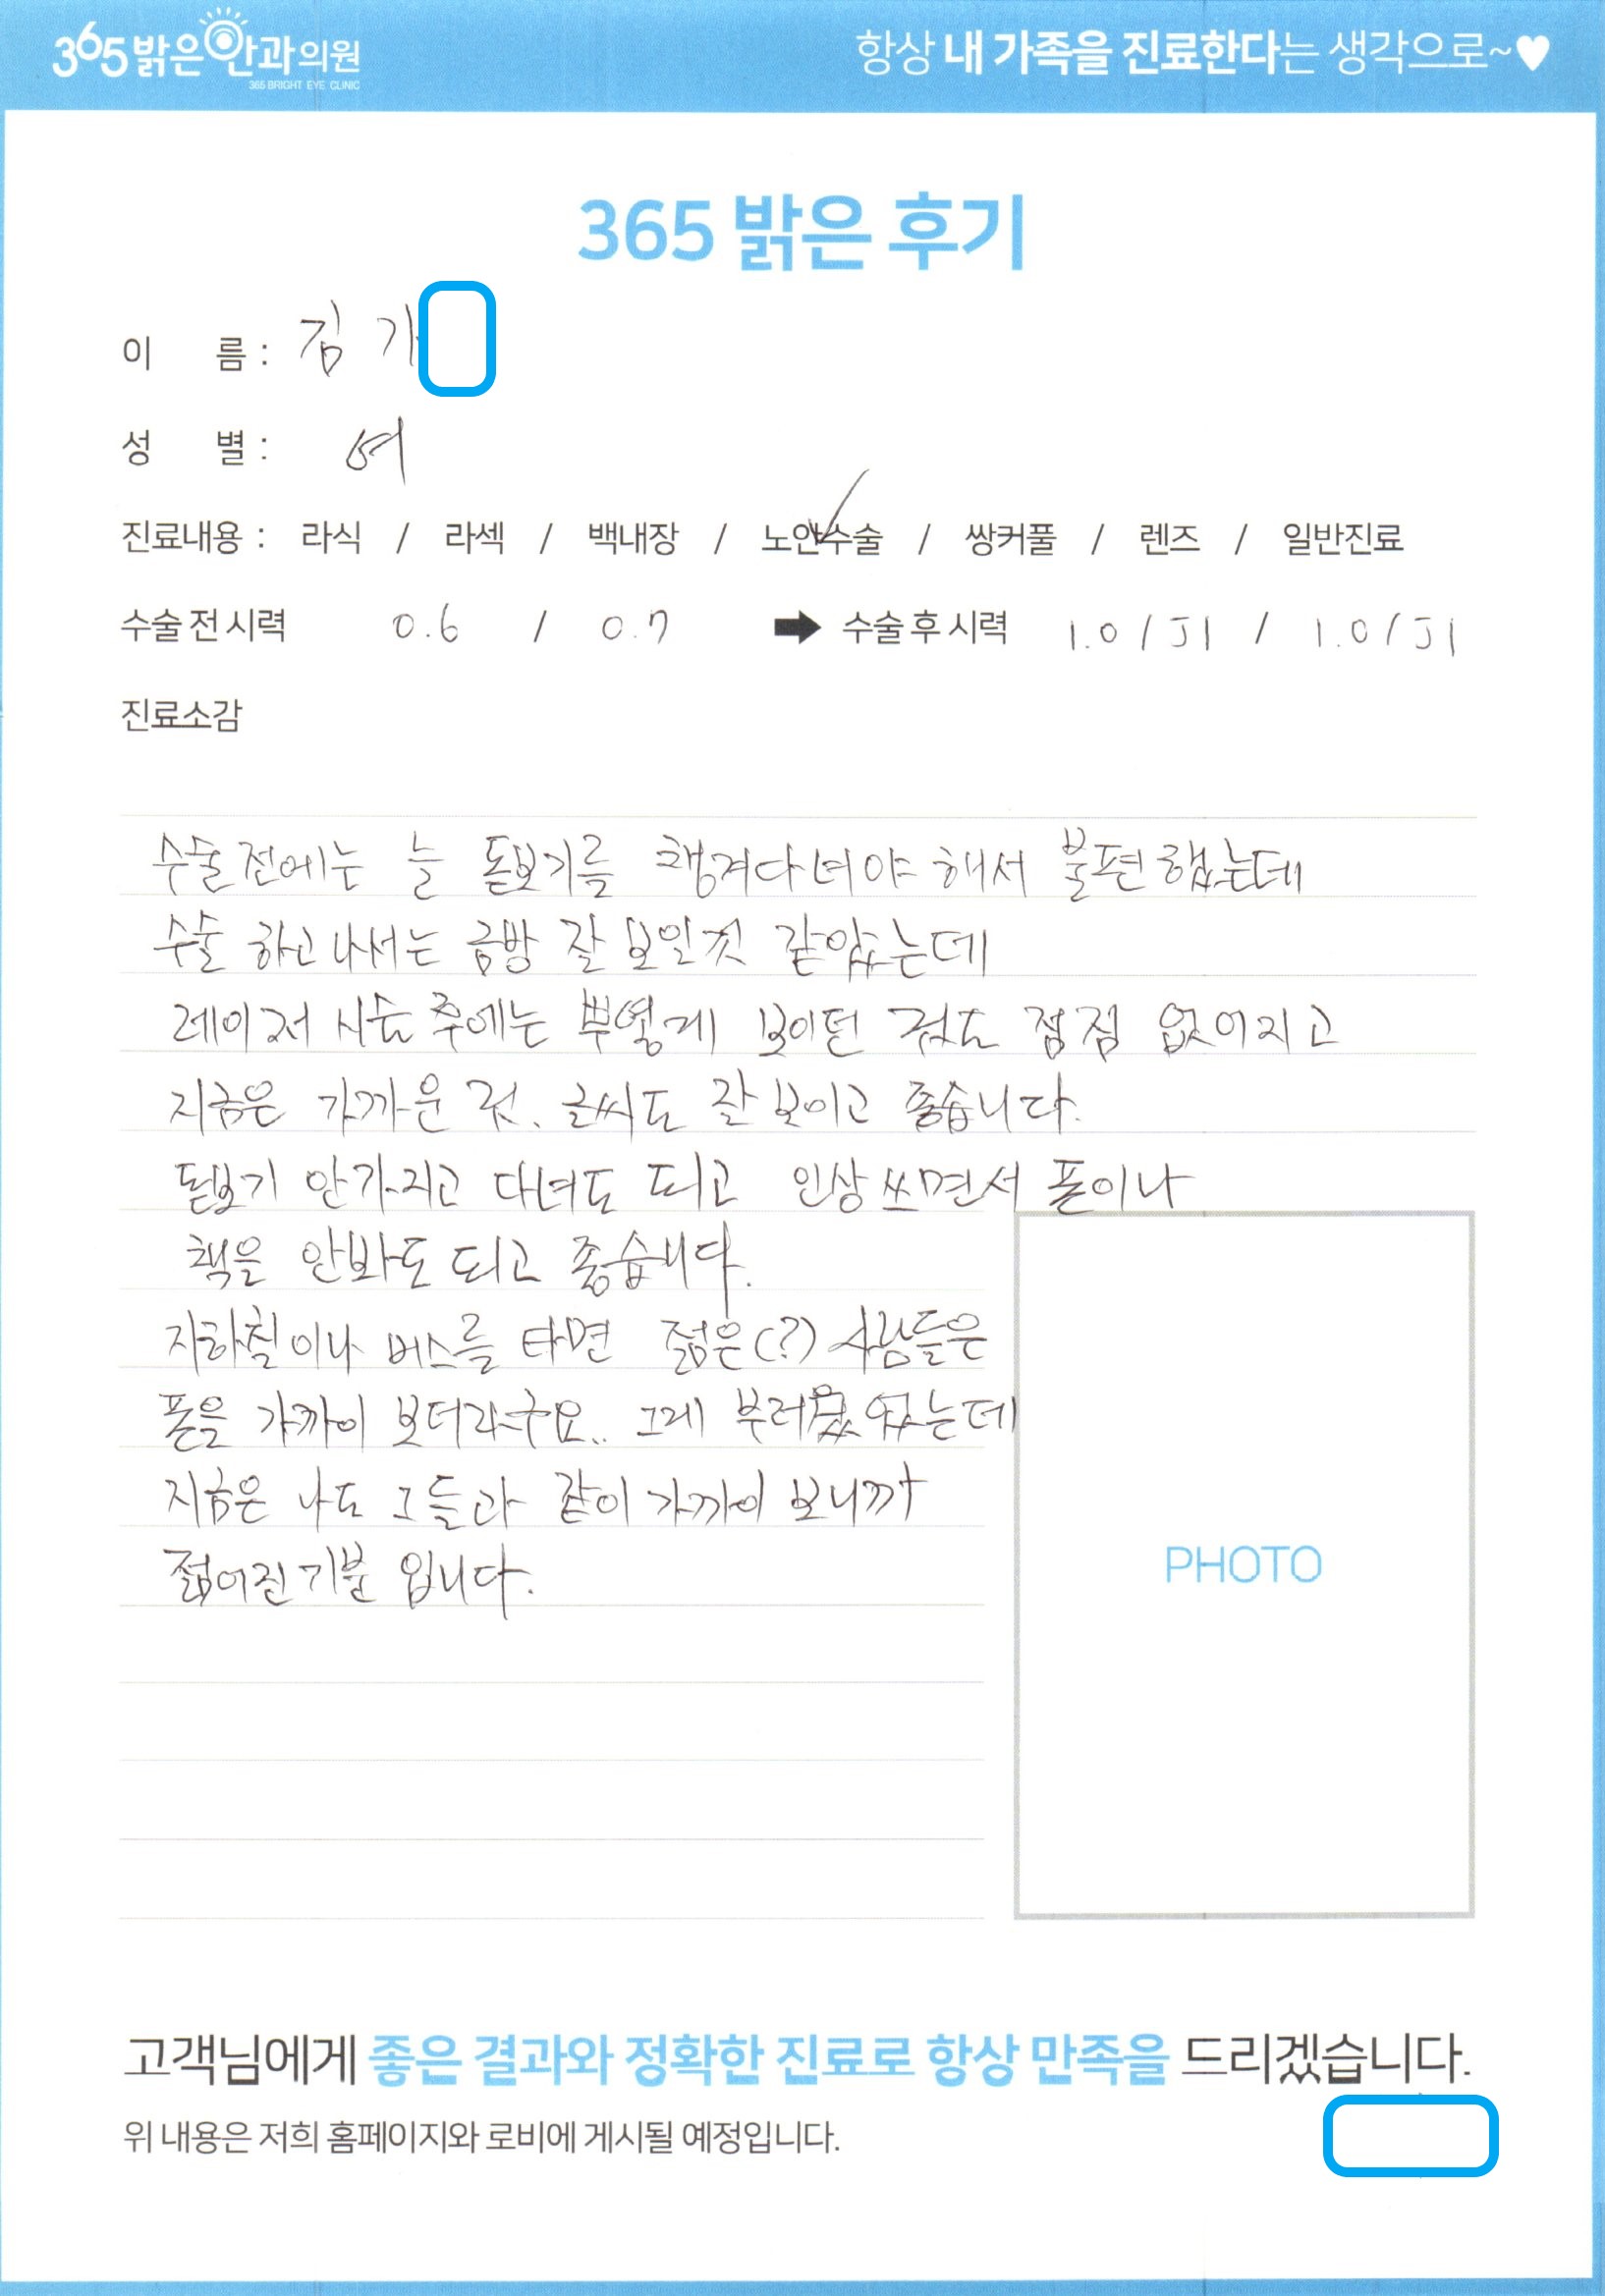 365 밝은안과의원
365 BRIGHT EYE CLINIC
항상 내 가족을 진료한다는 생각으로~♥
365 밝은 후기
이 름 : 김 가
성 별 : 여
진료내용 : 라식 / 라섹 / 백내장 / 노안수술 / 쌍커풀 / 렌즈 / 일반진료
수술 전 시력 0.6 / 0.7 ➡ 수술 후 시력 1.0 / J1 / 1.0 / J1
진료소감
수술전에는 늘 돋보기를 챙겨다녀야 해서 불편했는데
수술 하고나서는 금방 잘 보일것 같았는데
레이저 시술 후에는 뿌옇게 보이던 것도 점점 없어지고
지금은 가까운 것, 글씨도 잘 보이고 좋습니다.
돋보기 안가지고 다녀도 되고 인상 쓰면서 폰이나
책을 안봐도 되고 좋습니다.
지하철이나 버스를 타면 젊은(?) 사람들은
폰을 가까이 보더라구요.. 그게 부러 었는데
지금은 나도 그들과 같이 가까이 보니까
젊어진기분 입니다.
PHOTO
고객님에게 좋은 결과와 정확한 진료로 항상 만족을 드리겠습니다.
위 내용은 저희 홈페이지와 로비에 게시될 예정입니다.